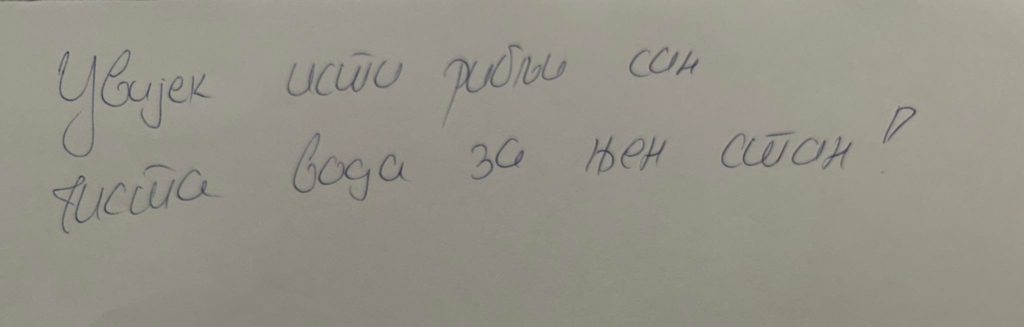 Увијек исти рибљи сан
чиста вода за њен стан!